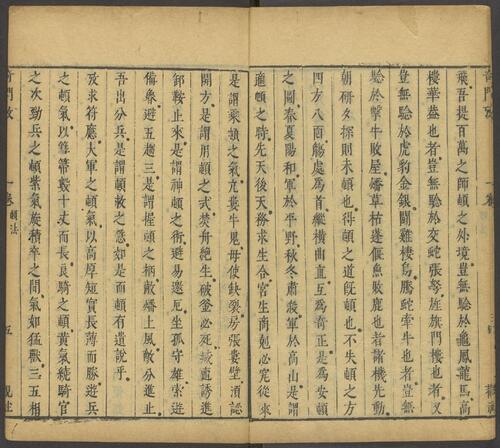 飛吾提百萬之師頓之外境豈無驗於龜鳳龍馬高
樓華蓋也者豈無驗於交蛇張弩旌旗門樓也者又
豈無驗於虎豹金銀鬬雞棲烏騰蛇牽牛也者豈無
驗於擊牛敗屋墦草枯蓬偃魚敗鹿也者諸機先動
朝研夕探則未頓也得頓之道旣頓也不失頓之方
四方八面觸處爲首縱橫曲直互爲奇正是爲安頓
之圖春夏陽和軍於平野秋冬肅殺軍於高山是謂
適頓之時先天後天務求生合宮生商剋必究從來
是謂乘頓之氣九囊牛見毋使缺裂房張婁壁須認
開方是謂用頓之式焚舟絶生破釜必死緘直誘進
卸鞍止來是謂神頓之術避易遷厄坐孤守雄索遊
備衆避五趨三是謂握頓之柄敵墦上風敵分進止
吾出分兵是謂頓敵之意如是而頓有遺說乎
攷求符應大軍之頓氣以高厚短實長薄而勝遊兵
之頓氣以箒帶數十丈而長良騎之頓黃氣繞騎官
之次勁兵之頓紫氣旋積卒之間氣如猛獸三五相
奇門攷
一卷
頓法
五